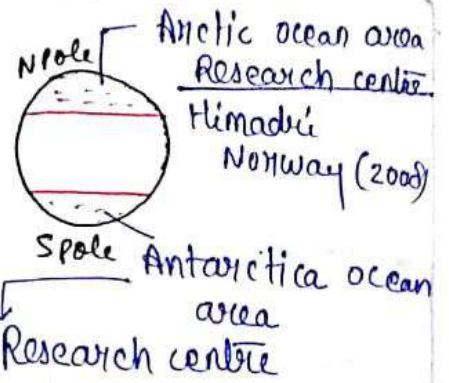 N pole
Arctic ocean area
Research centre
Himadri
Norway (2008)
S pole
Antarctica ocean
area
Research centre